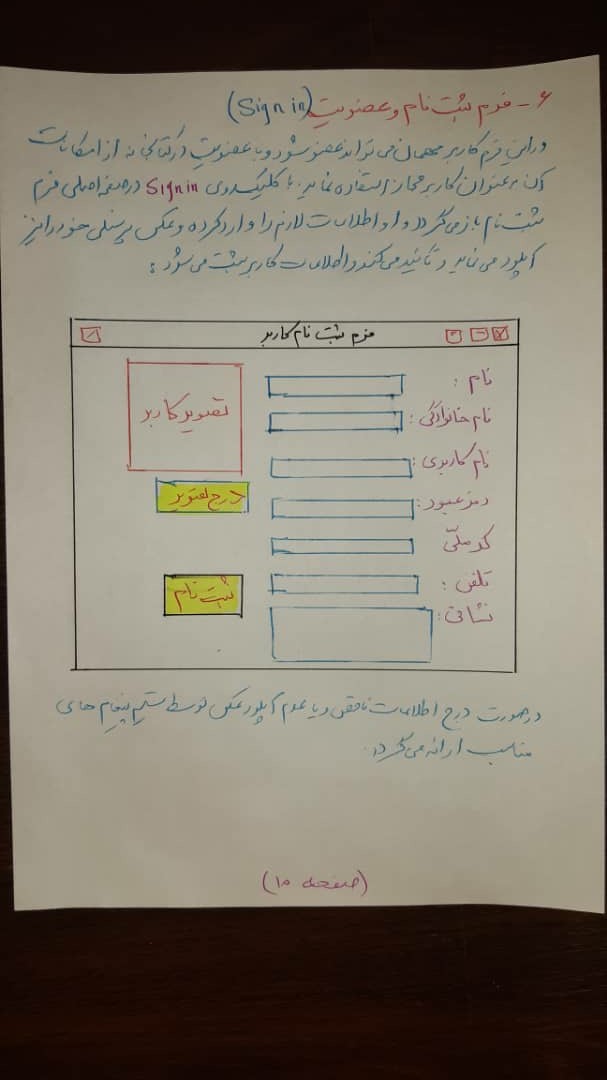 ۶- فرم ثبت نام و عضویت (Sign in)
در این فرم کاربر مهمان می تواند عضو شود و با عضویت در کتابخانه از امکانات
آن به عنوان کاربر مجاز استفاده نماید. با کلیک روی Sign in در صفحه اصلی فرم
ثبت نام باز می گردد و او اطلاعات لازم را وارد کرده و عکس پرسنلی خود را نیز
آپلود می نماید و تأئید می کند و اطلاعات کاربر ثبت می شود :
فرم ثبت نام کاربر
نام :
نام خانوادگی :
نام کاربری :
رمز عبور :
کد ملّی
تلفن :
نشانی :
تصویر کاربر
درج تصویر
ثبت نام
در صورت درج اطلاعات ناقص و یا عدم آپلود عکس توسط سیستم پیغام های
مناسب ارائه می گردد.
(صفحه ۱۰)